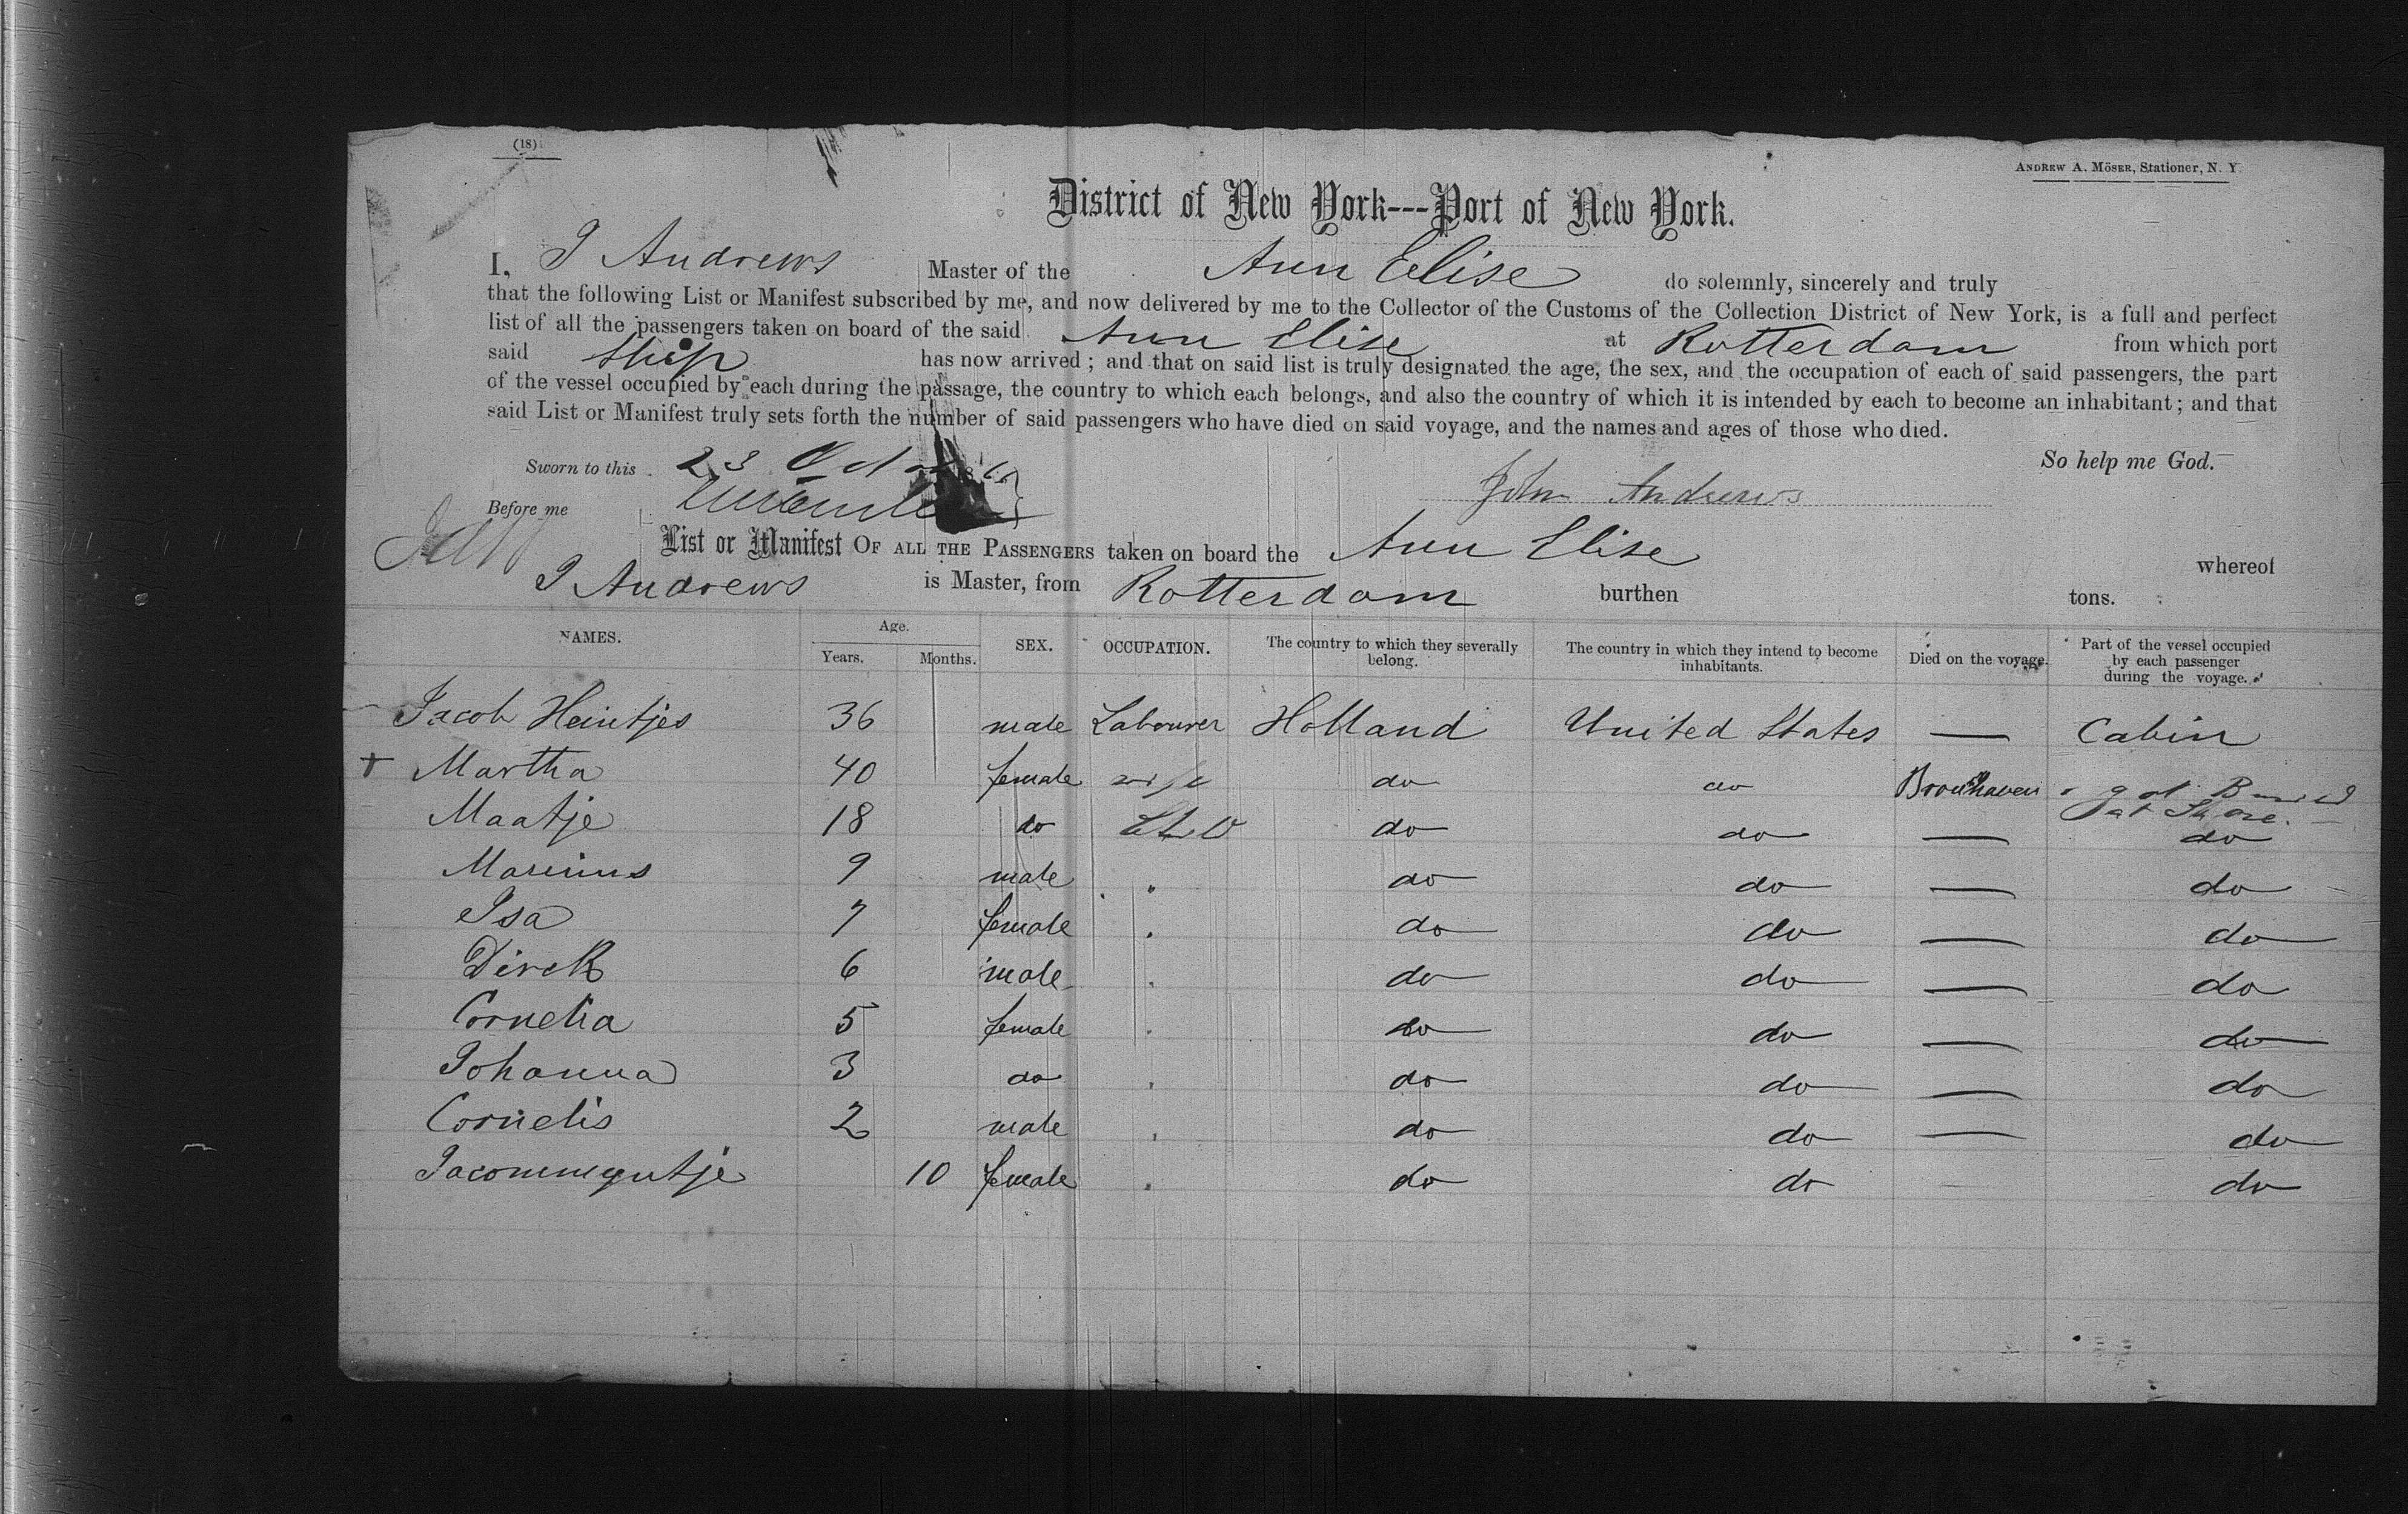 (18)
ANDREW A. MÖSER, Stationer, N. Y.
District of New York---Port of New York.
I, J Andrews Master of the Ann Elise do solemnly, sincerely and truly
that the following List or Manifest subscribed by me, and now delivered by me to the Collector of the Customs of the Collection District of New York, is a full and perfect
list of all the passengers taken on board of the said Ann Elise at Rotterdam from which port
said Ship has now arrived; and that on said list is truly designated the age, the sex, and the occupation of each of said passengers, the part
of the vessel occupied by each during the passage, the country to which each belongs, and also the country of which it is intended by each to become an inhabitant; and that
said List or Manifest truly sets forth the number of said passengers who have died on said voyage, and the names and ages of those who died.
So help me God.
Sworn to this 23
John Andrews
Before me
List or Manifest OF ALL THE PASSENGERS taken on board the Ann Elise whereof
J Andrews is Master, from Rotterdam burthen tons.
NAMES. Age. Years. Months. SEX. OCCUPATION. The country to which they severally belong. The country in which they intend to become inhabitants. Died on the voyage. Part of the vessel occupied by each passenger during the voyage.
Jacob Heintjes 36 male Labourer Holland United States — Cabin
+ Martha 40 female wife do do Brouwhaven got Buried at Shore.
Maatje 18 do do do — do
Marinus 9 male " do do — do
Isa 7 female " do do — do
Dirck 6 male " do do — do
Cornelia 5 female " do do — do
Johanna 3 do " do do — do
Cornelis 2 male " do do — do
Jacommyntje 10 female " do do do